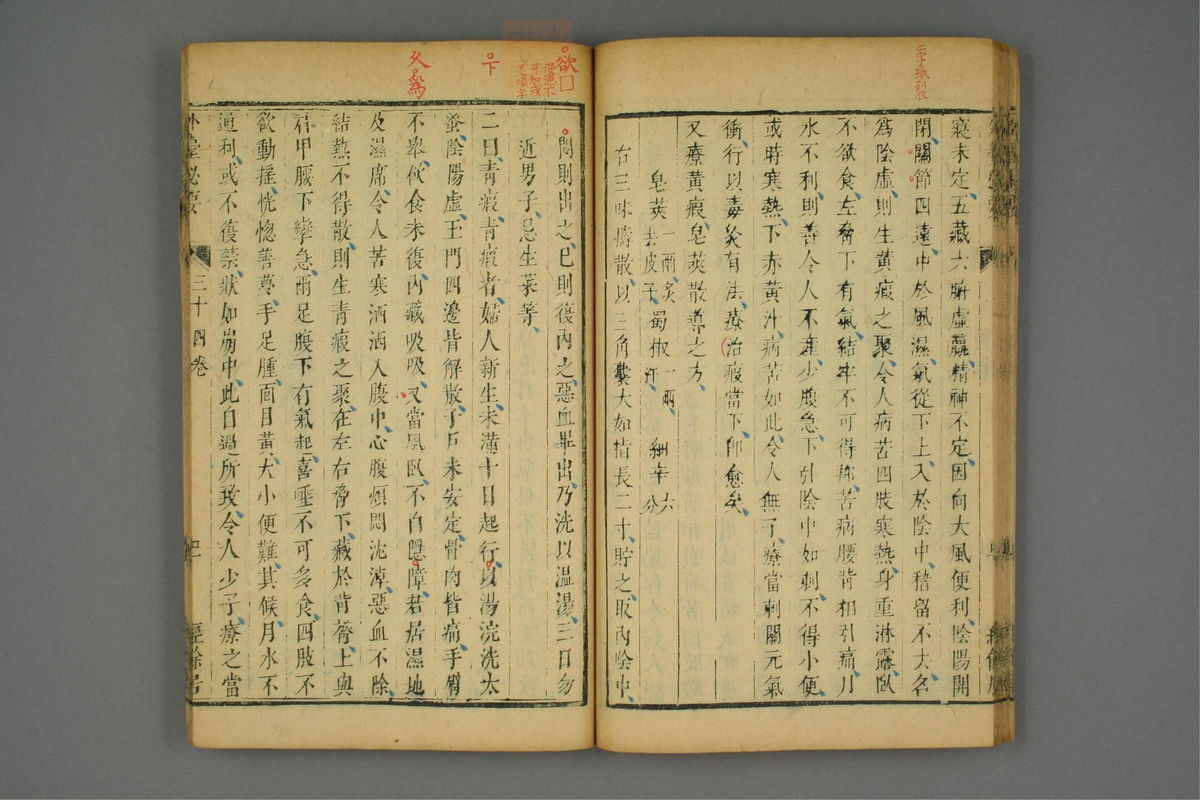 竅未定五藏六腑虛羸精神不定因向大風便利陰陽開
閉關節四遠中於風濕氣從下上入於陰中稽留不大名
爲陰虛則生黃瘕之聚令人病苦四肢寒熱身重淋露臥
不欲食左脅下有氣結牢不可得抑苦病腰背相引痛月
水不利則善令人不產少腹急下引陰中如刺不得小便
或時寒熱下赤黃汁病苦如此令人無子療當刺關元氣
衝行以毒藥有法療治瘕當下即愈矣
又療黃瘕皂莢散導之方
皂莢一兩炙去皮子 蜀椒一兩汗 細辛六分
右三味擣散以三角囊大如指長二寸貯之取內陰中
欲□
悶則出之已則復內之惡血畢出乃洗以溫湯三日勿
近男子忌生菜等
二曰青瘕青瘕者婦人新生未滿十日起行以湯浣洗太
蚤陰陽虛玉門四邊皆解散子戶未安定骨肉皆痛手臂
不舉飲食未復內藏吸吸又當風臥不自隱障若居濕地
及濕席令人苦寒洒洒入腹中心腹煩悶沈淖惡血不除
結熱不得散則生青瘕之聚在左右脅下藏於背膂上與
肩甲腰下攣急兩足腹下有氣起喜唾不可多食四肢不
欲動搖恍惚善夢手足腫面目黃大小便難其候月水不
通利或不復禁狀如崩中此自過所致令人少子療之當
外臺秘要 三十四卷